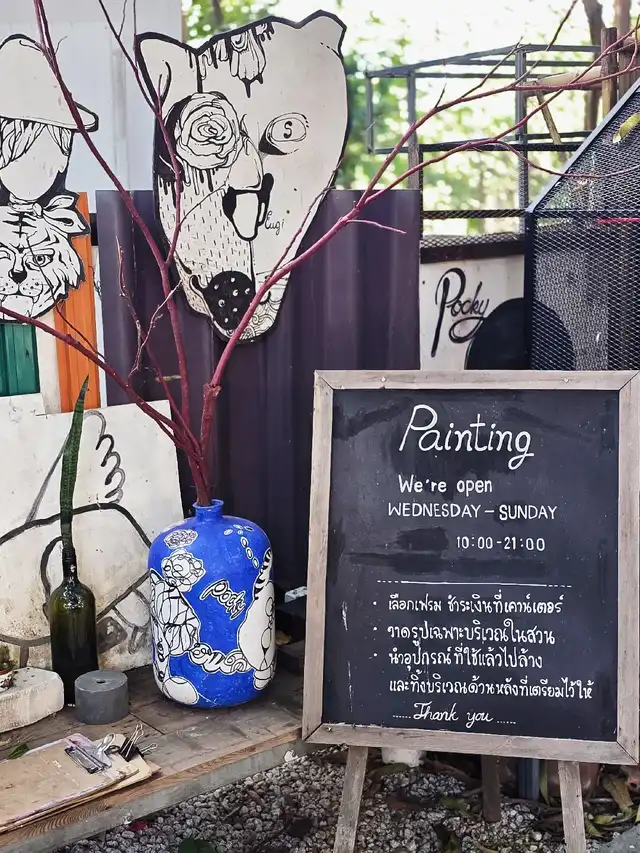 S
Eugi
Pocky
Painting
We're open
WEDNESDAY - SUNDAY
10:00-21:00
• เลือกเฟรม ชำระเงินที่เคาน์เตอร์
• วาดรูปเฉพาะบริเวณในสวน
• นำอุปกรณ์ที่ใช้แล้วไปล้าง
และทิ้งบริเวณด้านหลังที่เตรียมไว้ให้
...... Thank you ......
Pocky